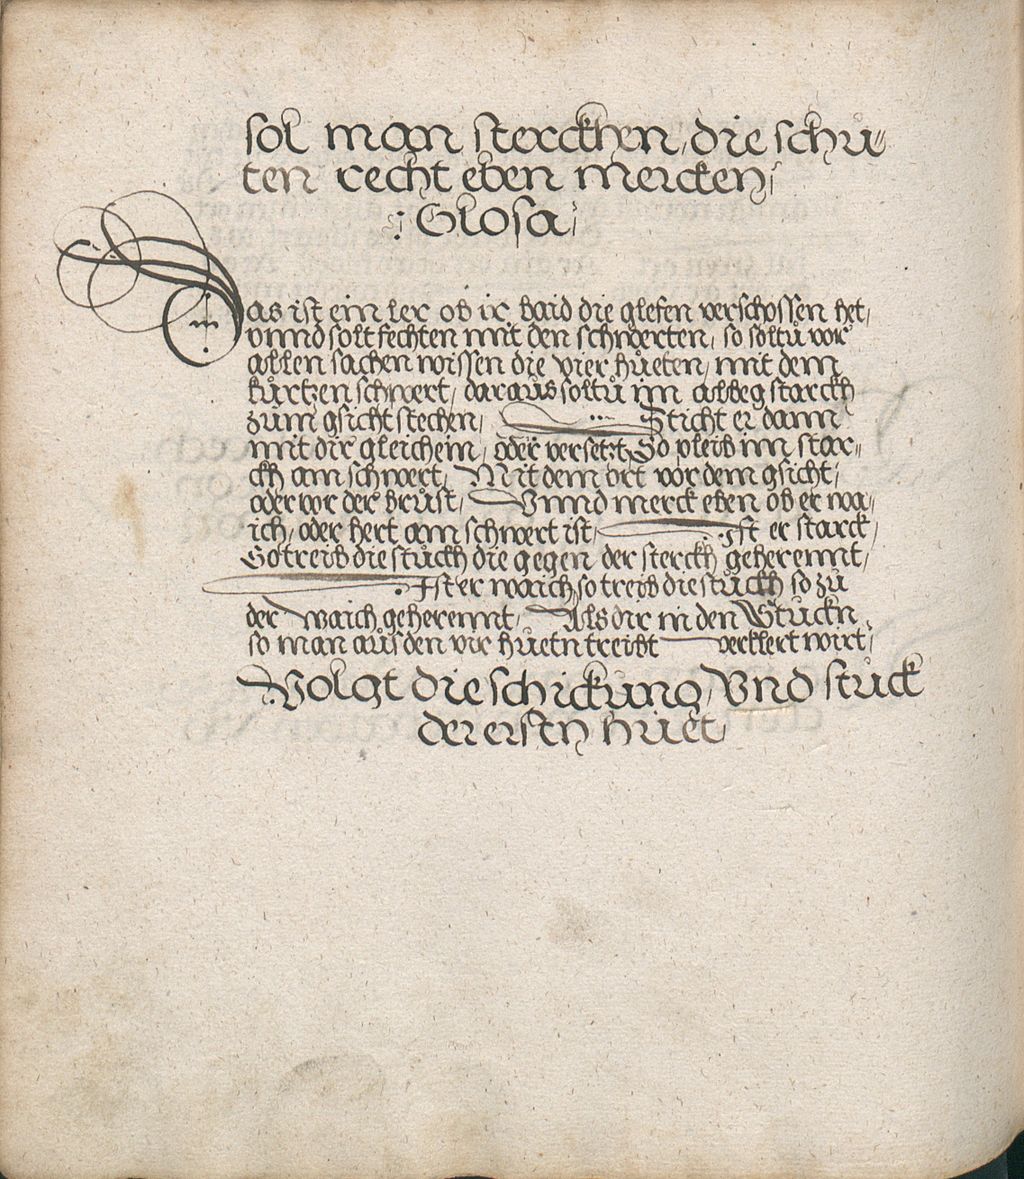 sol man sterckhen, die schü-
ten recht eben mercken,
: Glosa,
Das ist ein ler ob ir baid die glefen verschossen het,
vnnd solt fechten mit den schwerten, so soltu vor
allen sachen wissen die vier hüeten, mit dem
kürtzen schwert, daraüs soltü im albeg starckh
züm gsicht stechen, Sticht er dann
mit dir gleich ein, oder versetzt, So pleib im star-
ckh am schwert, Mit dem ort vor dem gsicht,
oder vor der brüst, Vnnd merck eben ob er wa-
ich, oder hert am schwert ist, Ist er starck,
So treib die stückh die gegen der sterckh geherennt,
Ist er waich, so treib die stückh so zü
der waich geherennt, Als dir in den Stuckn
so man aüs den vir hüetn treibt verklert wirt,
Volgt die schickung, Vnd stück
der erstn hüet,